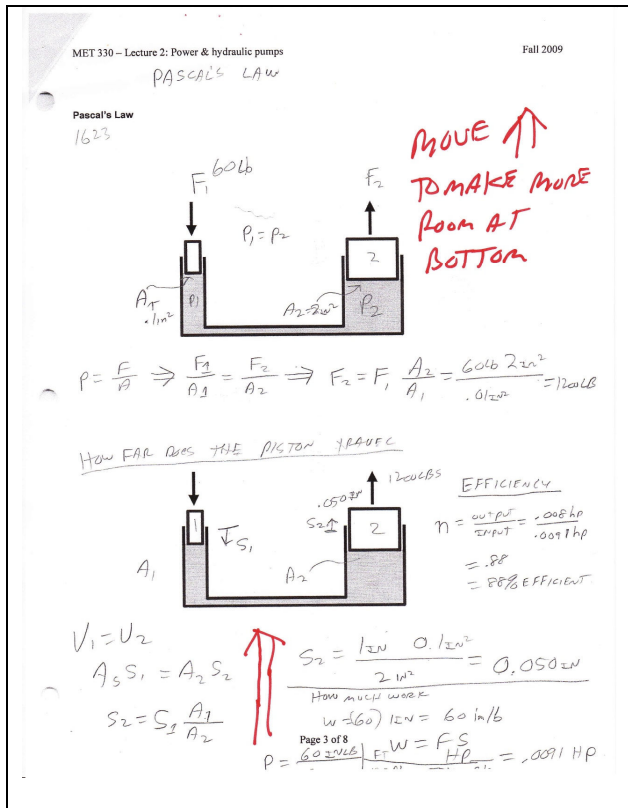 MET 330 – Lecture 2: Power & hydraulic pumps
Fall 2009
PASCAL'S LAW
Pascal's Law
1623
MOVE ⇑
TO MAKE MORE
ROOM AT
BOTTOM
F₁ 60Lb
F₂
P₁ = P₂
2
A₁
.1in²
P₁
A₂=2in²
P₂
P = F/A ⇒ F1/A1 = F₂/A₂ ⇒ F₂ = F₁ A₂/A₁ = 60lb 2in²/.01in² = 1200LB
HOW FAR DOES THE PISTON TRAVEL
1200LBS
.050IN
S2↑
1
↓S₁
2
A₁
A₂
EFFICIENCY
n = OUTPUT/INPUT = .008hp/.0091hp
= .88
= 88% EFFICIENT
V₁ = V₂
A₅ S₁ = A₂ S₂
S2 = S1 A1/A2
S₂ = 1IN 0.1IN²/2 IN² = 0.050IN
HOW MUCH WORK
W = (60) 1IN = 60 in/b
Page 3 of 8
W = FS
P = 60INLB FT HP = .0091 HP